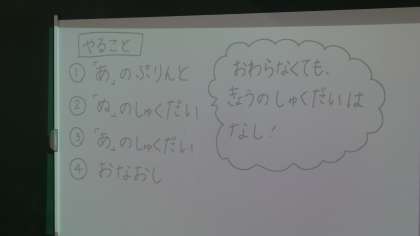 やること
① 「あ」のぷりんと
② 「ぬ」のしゅくだい
③ 「あ」のしゅくだい
④ おなおし
おわらなくても、
きょうのしゅくだいは
なし！